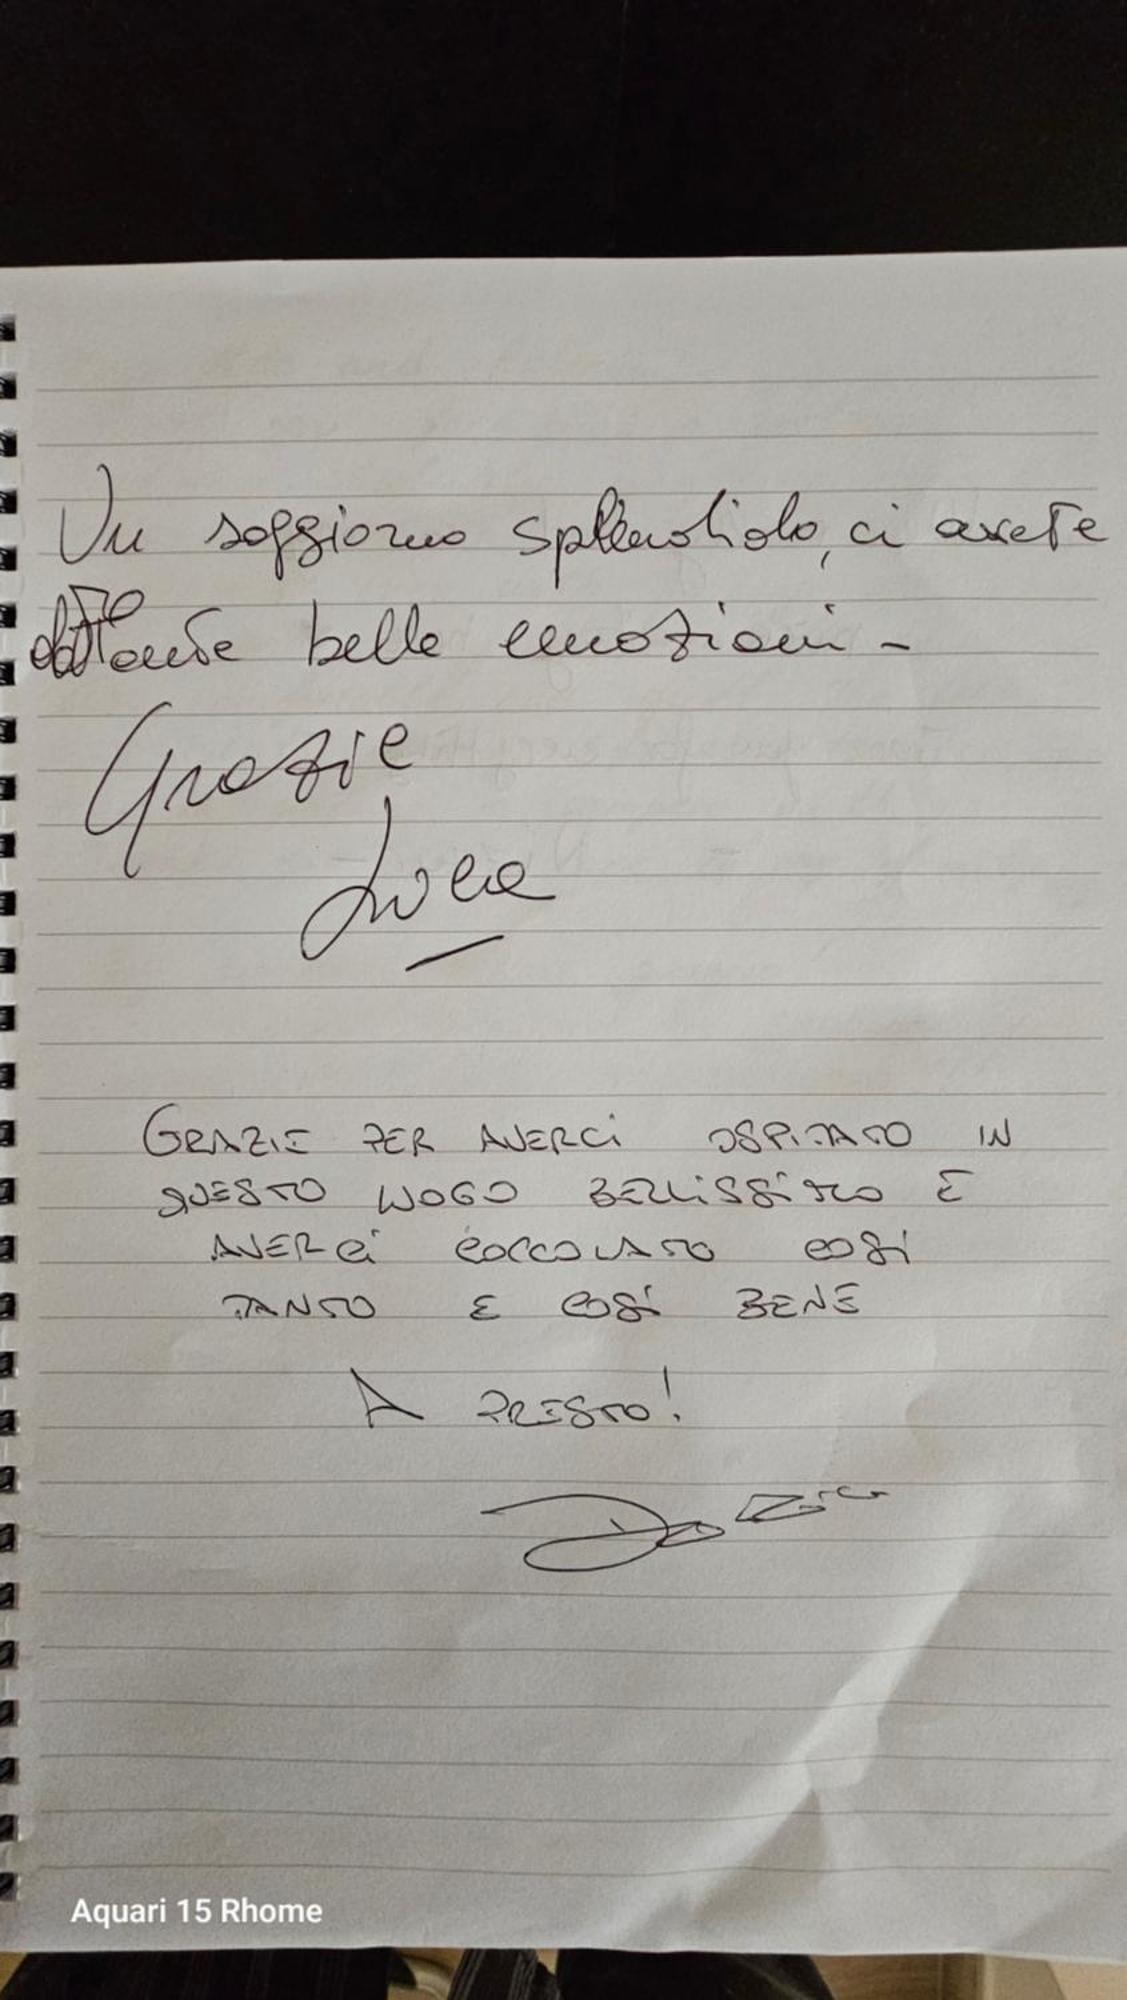 Un soggiorno splendido, ci avete
dato tante belle emozioni -
Grazie
Luca
GRAZIE PER AVERCI OSPITATO IN
QUESTO LUOGO BELLISSIMO E
AVERCI COCCOLATO COSÌ
TANTO E COSÌ BENE
A PRESTO!
Aquari 15 Rhome